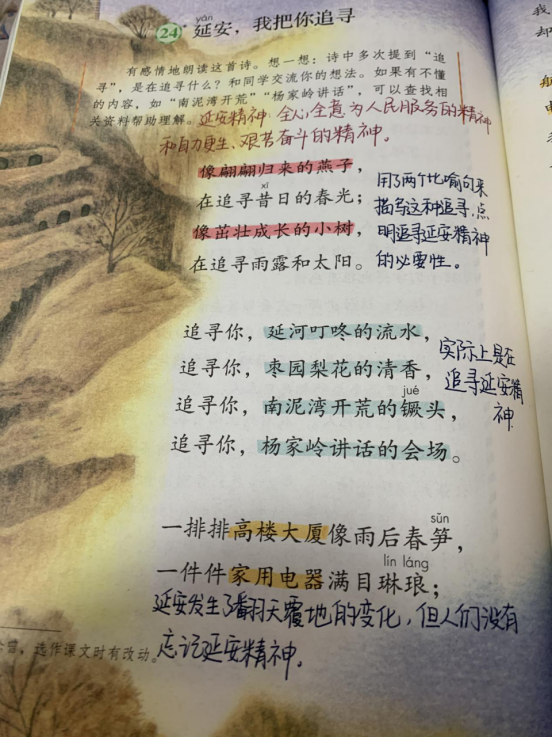 yán
24 延安，我把你追寻
有感情地朗读这首诗。想一想：诗中多次提到“追
寻”，是在追寻什么？和同学交流你的想法。如果有不懂
的内容，如“南泥湾开荒”“杨家岭讲话”，可以查找相
关资料帮助理解。延安精神 全心全意为人民服务的精神
和自力更生、艰苦奋斗的精神。
像翩翩归来的燕子，
xī
在追寻昔日的春光；
像茁壮成长的小树，
在追寻雨露和太阳。
用了两个比喻句来
描写这种追寻，点
明追寻延安精神
的必要性。
追寻你，延河叮咚的流水，
追寻你，枣园梨花的清香，
jué
追寻你，南泥湾开荒的镢头，
追寻你，杨家岭讲话的会场。
实际上是在
追寻延安精
神
sǔn
一排排高楼大厦像雨后春笋，
lín láng
一件件家用电器满目琳琅；
延安发生了翻天覆地的变化，但人们没有
忘记延安精神。
选作课文时有改动。
我
却